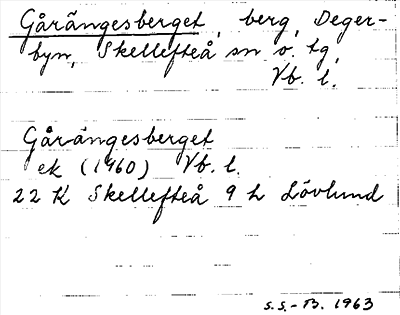 Gårängesberget, berg, Deger-
byn, Skellefteå sn o. tg,
Vb. l.
Gårängesberget
ek (1960) Vb. l.
22 K Skellefteå 9 h Lövlund
S.S.-B. 1963